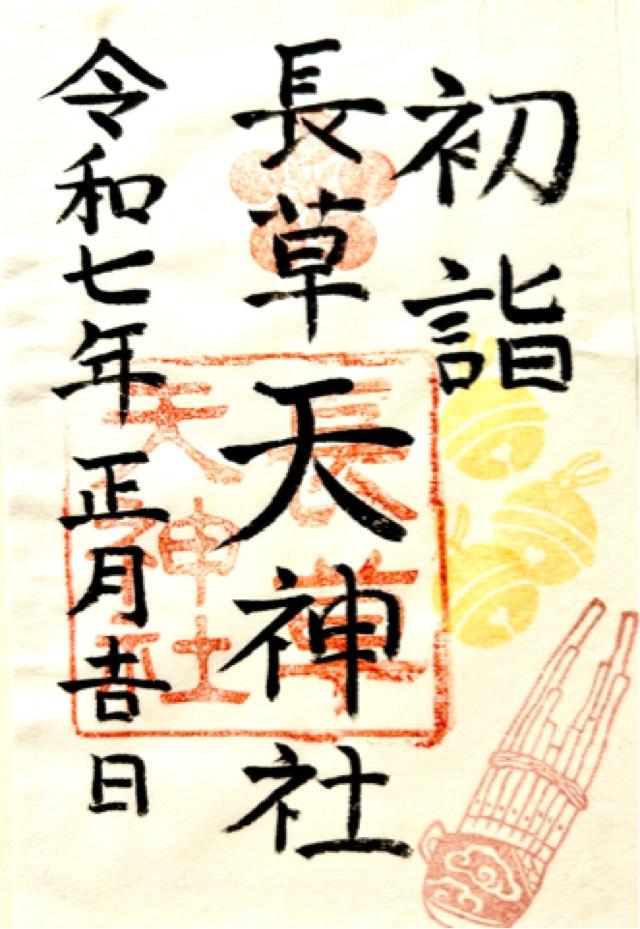 初詣
長草天神社
令和七年正月吉日
長草
天神社